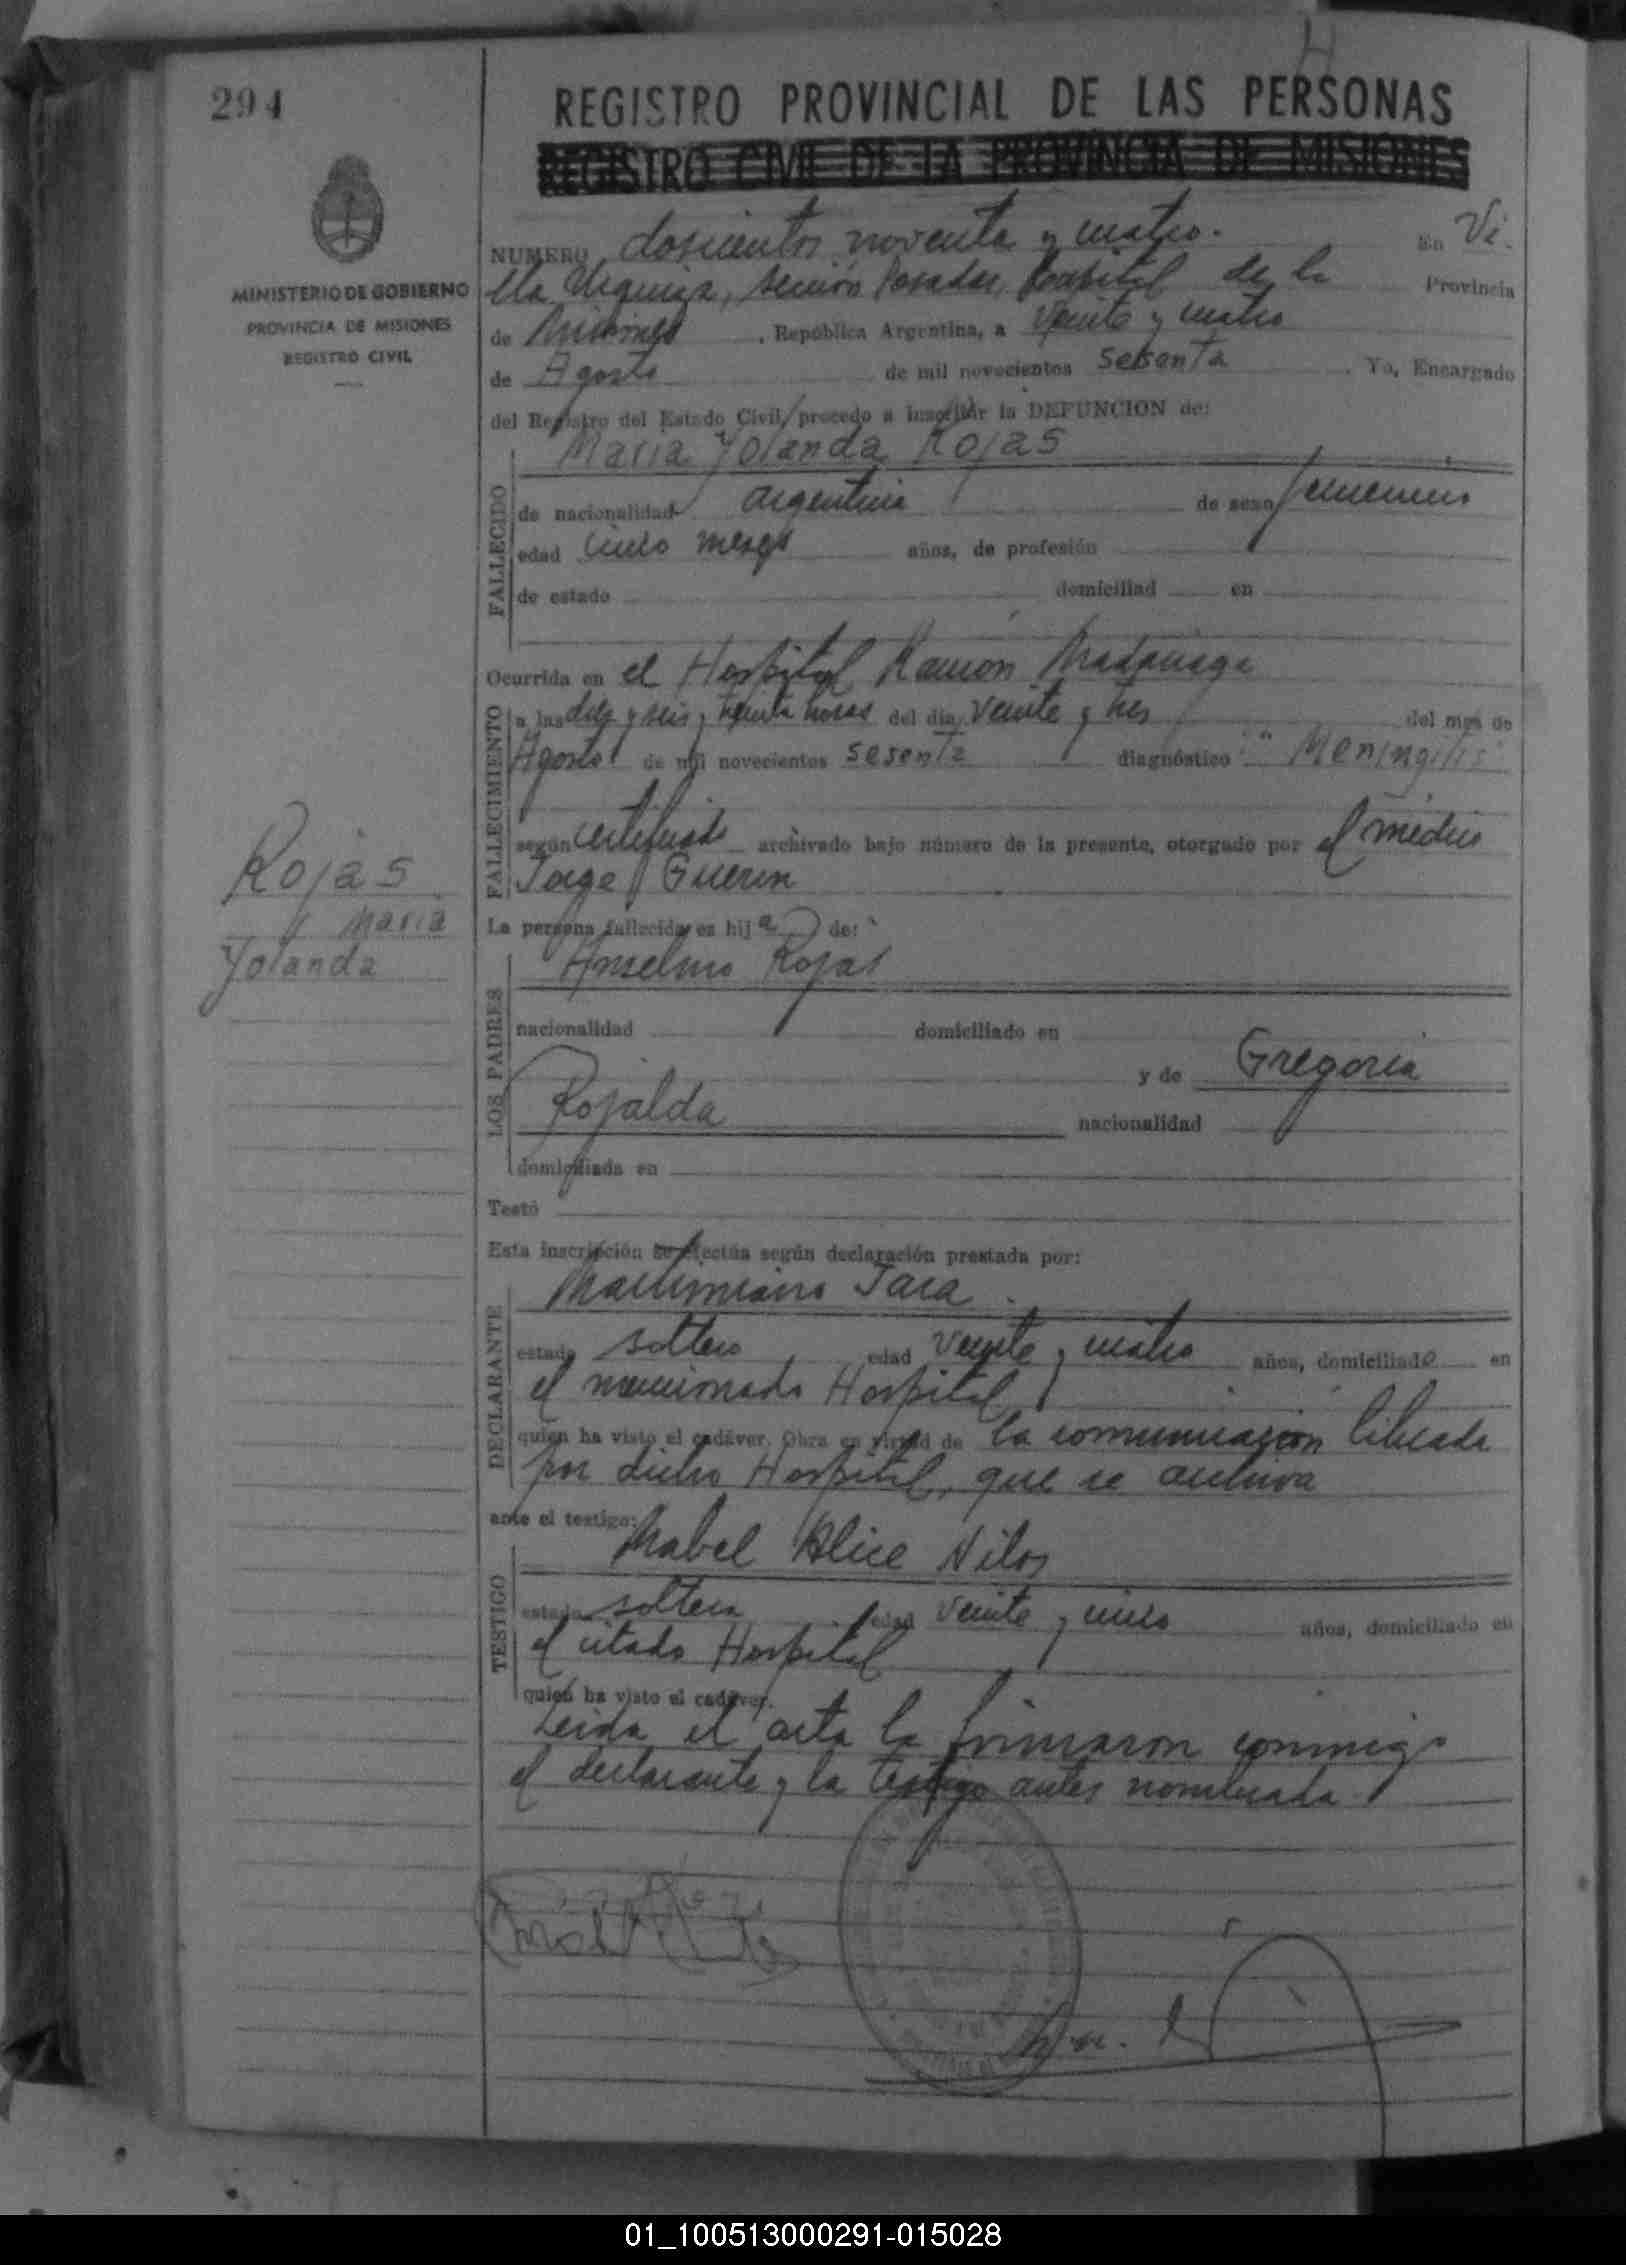 294
REGISTRO PROVINCIAL DE LAS PERSONAS
REGISTRO CIVIL DE LA PROVINCIA DE MISIONES
MINISTERIO DE GOBIERNO
PROVINCIA DE MISIONES
REGISTRO CIVIL
NUMERO doscientos noventa y cuatro. En Vi-
lla Urquiza, sección Posadas, Capital de la Provincia
de Misiones, República Argentina, a veinte y cuatro
de Agosto de mil novecientos sesenta. Yo, Encargado
del Registro del Estado Civil, procedo a inscribir la DEFUNCION de:
Maria Yolanda Rojas
FALLECIDO
de nacionalidad argentina de sexo femenino
edad cinco meses años, de profesión
de estado domiciliad en
Ocurrida en el Hospital Ramón Madariaga
FALLECIMIENTO
a las diez y seis y treinta horas del día veinte y tres del mes de
Agosto de mil novecientos sesenta diagnóstico "Meningitis"
según certificado archivado bajo número de la presente, otorgado por el médico
Jorge Guerin
Rojas
Maria
Yolanda
La persona fallecida es hija de:
LOS PADRES
Anselmo Rojas
nacionalidad domiciliado en
y de Gregoria
Rojalda nacionalidad
domiciliada en
Testó
Esta inscripción se efectúa según declaración prestada por:
DECLARANTE
Maximiano Jara.
estado soltero edad veinte y cuatro años, domiciliado en
el mencionado Hospital
quien ha visto el cadáver. Obra en virtud de la comunicación librada
por dicho Hospital, que se archiva
ante el testigo:
TESTIGO
Mabel Alice Nilos
estado soltera edad veinte y cinco años, domiciliado en
el citado Hospital
quien ha visto el cadáver.
Leida el acta la firmaron conmigo
el declarante y la testigo antes nombrada
01_100513000291-015028